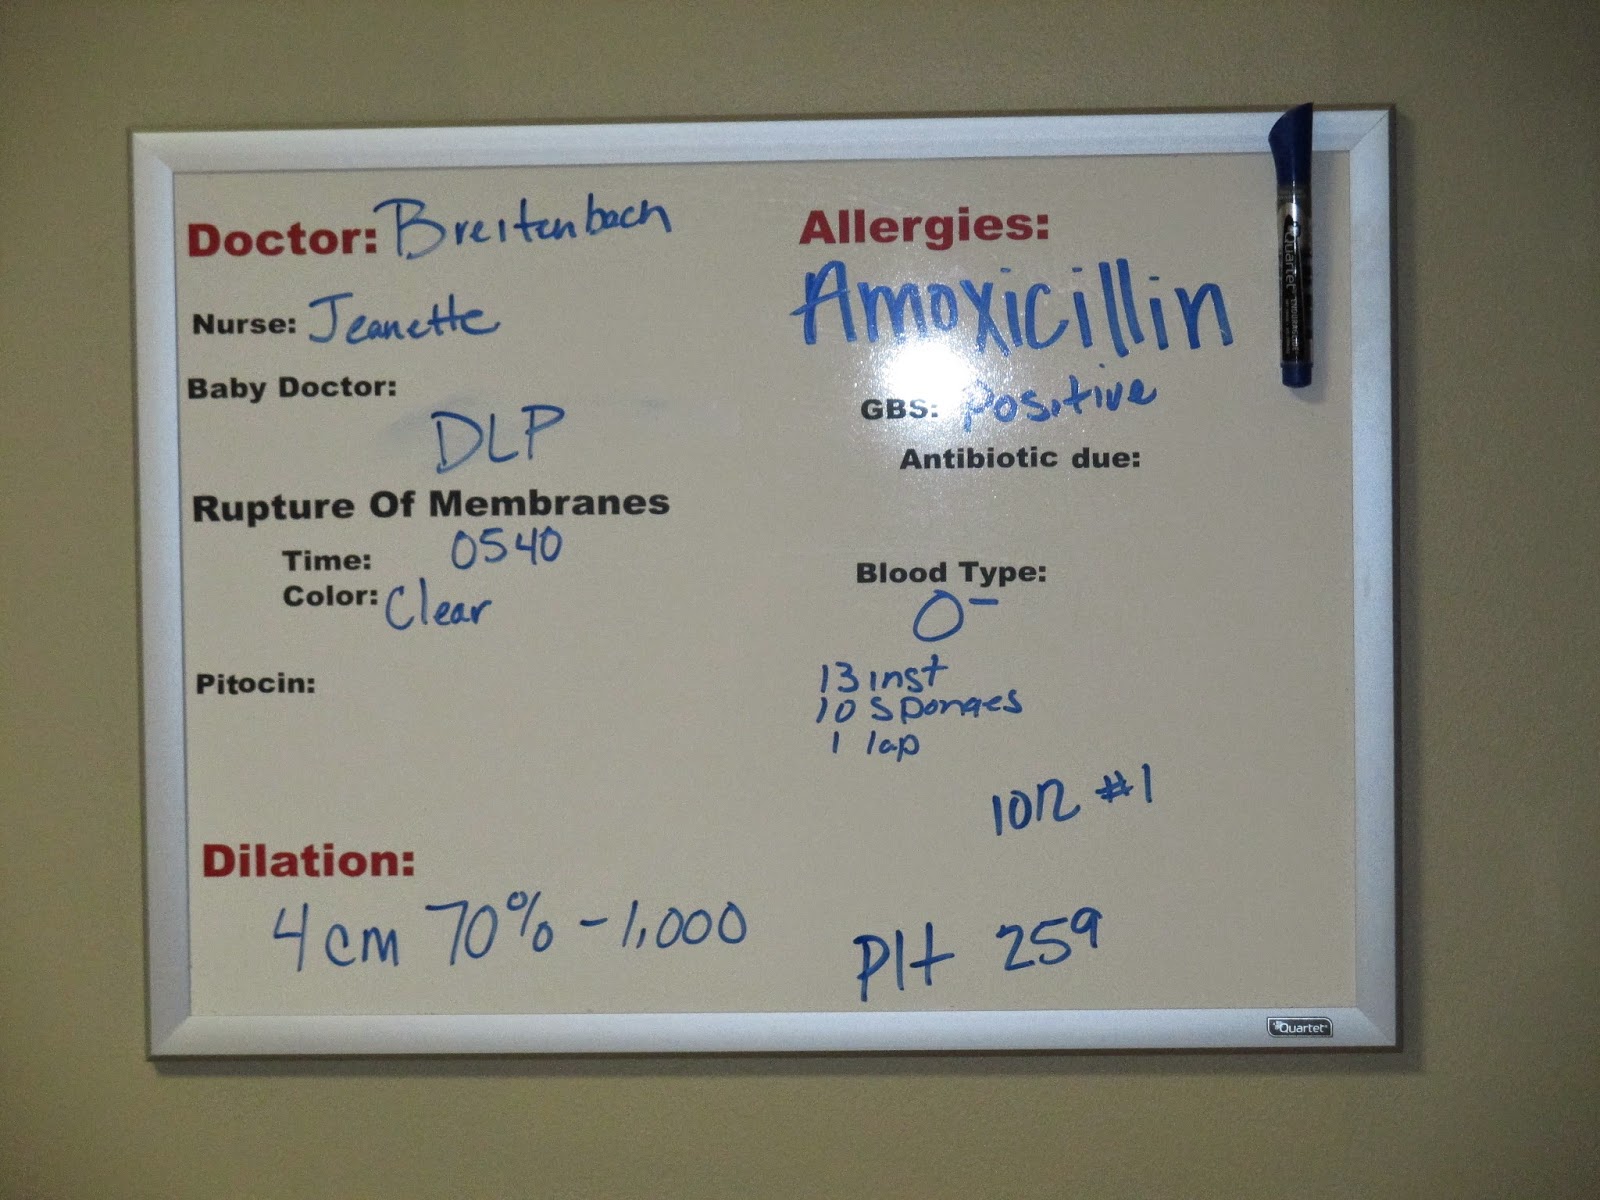 Doctor: Breitenbach
Nurse: Jeanette
Baby Doctor:
DLP
Rupture Of Membranes
Time: 0540
Color: Clear
Pitocin:
Dilation:
4cm 70% -1,000
Allergies:
Amoxicillin
GBS: Positive
Antibiotic due:
Blood Type:
O-
13 inst
10 sponges
1 lap
#1
Plt 259
Quartet
Quartet